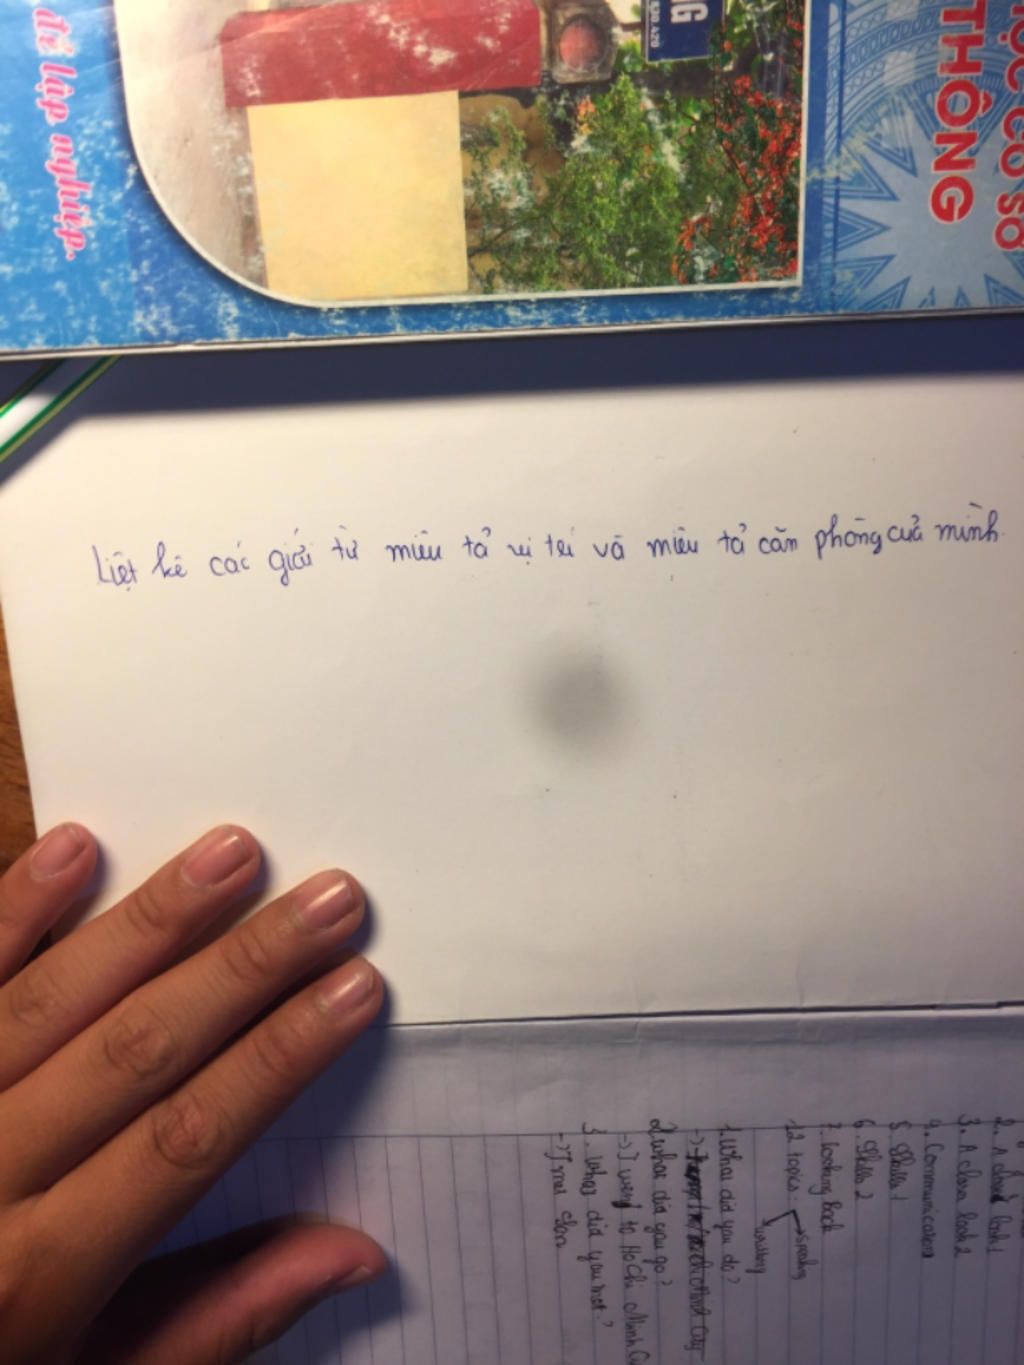 để lập nghiệp.
NG
ỌC CƠ SỞ
THÔNG
Liệt kê các giới từ miêu tả vị trí và miêu tả căn phòng của mình.
2. A closer look 1
3. A closer look 2
4. Communication
5. Skills 1
6. Skills 2
7. Looking back
12 topics
speaking
writing
1. What did you do?
2. What did you go?
-> I went to Ho Chi Minh
3. Whos did you met?
-> I met